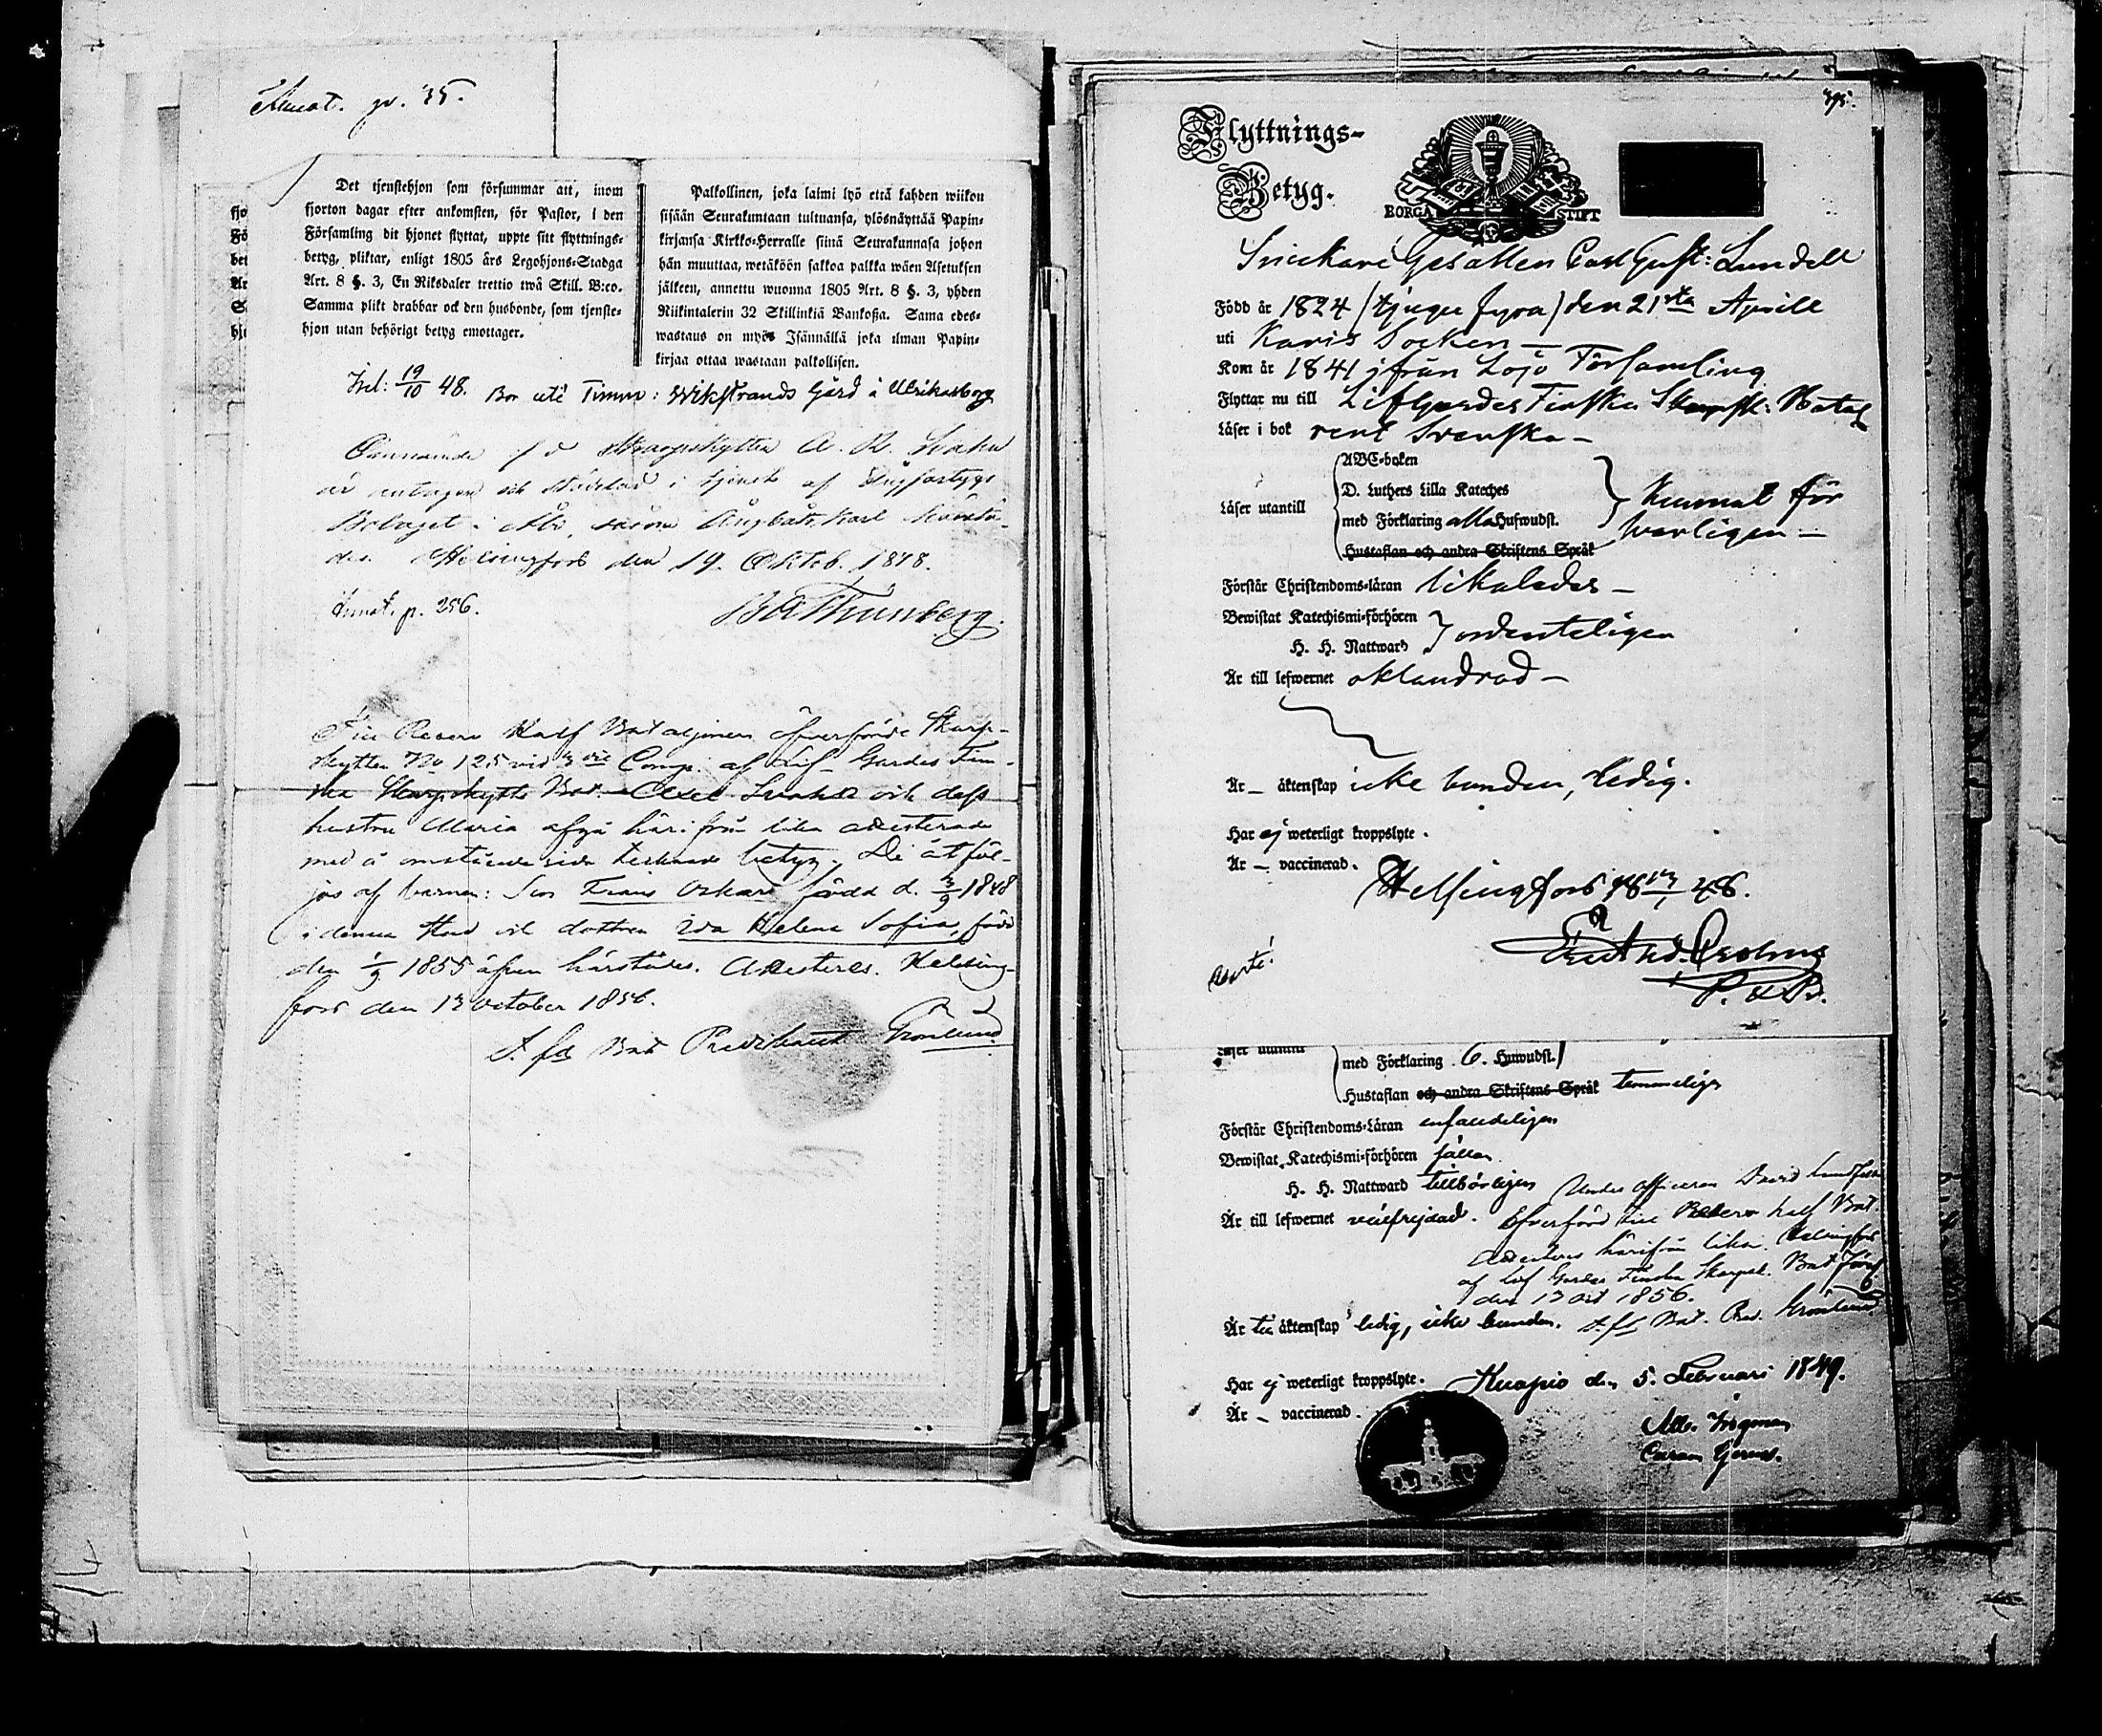 Kmat. p. 35.
Det tjenstehjon som försummar att, inom
fjorton dagar efter ankomsten, för Pastor, i den
Församling dit hjonet flyttat, uppte sitt flyttnings-
betyg, pliktar, enligt 1805 års Legohjons-Stadga
Art. 8 §. 3, En Riksdaler trettio twå Skill. B:co.
Samma plikt drabbar ock den husbonde, som tjenste-
hjon utan behörigt betyg emottager.
Palkollinen, joka laimi lyö että kahden wiikon
sisään Seurakuntaan tultuansa, ylösnäyttää Papin-
kirjansa Kirkko-Herralle siinä Seurakunnasa johon
hän muuttaa, wetäköön sakkoa palkka wäen Asetuksen
jälkeen, annettu wuonna 1805 Art. 8 §. 3, yhden
Riikintalerin 32 Skillinkiä Bankosa. Sama edes-
wastaus on myös Isännällä joka ilman Papin-
kirjaa ottaa wastaan palkollisen.
fjo
Fö
bet
Ar
S
hj
19/10 48. Bor uti Timm: Wikstrands Gård å Ulrikasborg
Skarpskytten A. Svahn
är antagen och städslad i tjenst af Ångfartygs
Bolaget i Åbo, såsom
Helsingfors den 19. Oktob. 1848.
p. 256.
Thunberg.
Till Reserv Half Bataljonen öfverförde Skarp-
skytten No 125 vid Comp. af Lif Gardes Fin-
ska Skarpskytte Bat. Axel Svahn och dess
hustru Maria afgå härifrån lika attesterade
med å omstående sida tecknade betyg. De åtföl-
jas af barnen: Son Frans Oskar född d. 1848
i denna Stad och dottren Ida Helena Sofia, född
den 1/9 1855 äfven härstädes. Attesteras. Helsing-
fors den 13 October 1856.
Bat Predikant Grönlund
395.
Flyttnings-
Betyg.
BORGÅ STIFT
Snickare Gesällen Carl Gust: Lundell
Född år 1824 (tjugu fyra) den 21sta Aprill
uti Karis Socken —
Kom år 1841 ifrån Lojo Församling
Flyttar nu till Lifgardes Finska Skarpsk: Batal
Läser i bok rent Svenska —
Läser utantill
ABC-boken
D. Luthers Lilla Kateches
med Förklaring alla Hufwudst.
Hustaflan och andra Skriftens Språk
Förstår Christendoms-läran likaledes —
Bewistat Katechismi-förhören
H. H. Nattward
ordenteligen
Är till lefwernet oklandrad —
Är — äktenskap icke bunden, ledig.
Har ej weterligt kroppslyte.
Är — vaccinerad.
Helsingfors 48.
med Förklaring 6. Huwudst.
Hustaflan och andra Skriftens Språk temmeligen
Förstår Christendoms-Läran enfaldeligen
Bewistat Katechismi-förhören sällan
H. H. Nattward tillbörligen
Är till lefwernet välfrejdad.
Under Officeren David
Öfverförd till Reserv half Bat.
Attesteras härifrån lika. Helsingfors
af Lif Gardes Finska Skarpsk. Bat
den 13 Oct 1856.
Bat. Pred. Grönlund
Är till äktenskap ledig, icke bunden.
Har ej weterligt kroppslyte.
Är — vaccinerad.
Kuopio den 5. Februari 1849.